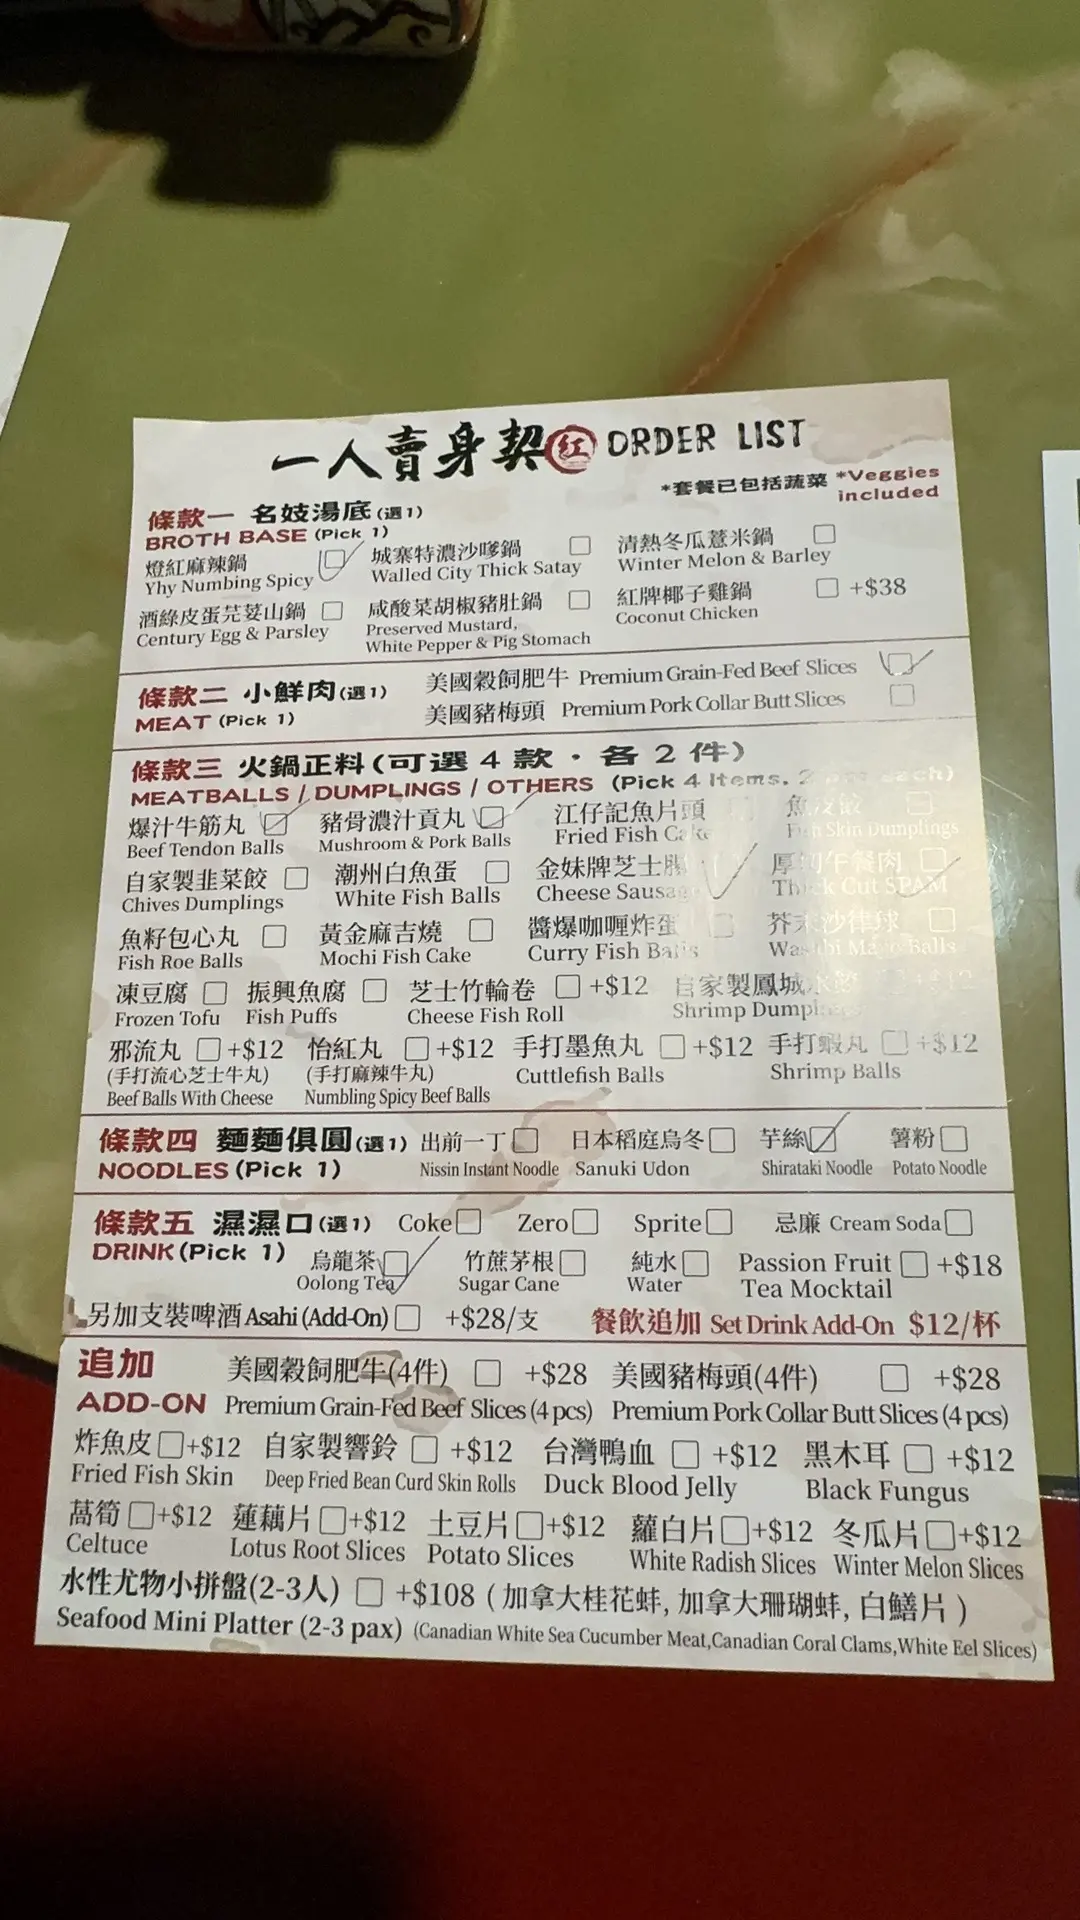 一人賣身契 紅 ORDER LIST
*套餐已包括蔬菜 *Veggies included
條款一 名妓湯底(選1)
BROTH BASE (Pick 1)
燈紅麻辣鍋 城寨特濃沙嗲鍋 清熱冬瓜薏米鍋
Yhy Numbing Spicy Walled City Thick Satay Winter Melon & Barley
酒綠皮蛋芫荽山鍋 咸酸菜胡椒豬肚鍋 紅牌椰子雞鍋 +$38
Century Egg & Parsley Preserved Mustard, White Pepper & Pig Stomach Coconut Chicken
條款二 小鮮肉(選1) 美國穀飼肥牛 Premium Grain-Fed Beef Slices
MEAT (Pick 1) 美國豬梅頭 Premium Pork Collar Butt Slices
條款三 火鍋正料(可選4款・各2件)
MEATBALLS / DUMPLINGS / OTHERS (Pick 4 Items, 2 each)
爆汁牛筋丸 豬骨濃汁貢丸 江仔記魚片頭 魚皮餃
Beef Tendon Balls Mushroom & Pork Balls Fried Fish Cake Fish Skin Dumplings
自家製韭菜餃 潮州白魚蛋 金妹牌芝士腸 厚切午餐肉
Chives Dumplings White Fish Balls Cheese Sausage Thick Cut SPAM
魚籽包心丸 黃金麻吉燒 醬爆咖喱炸蛋 芥末沙律球
Fish Roe Balls Mochi Fish Cake Curry Fish Balls Wasabi Mayo Balls
凍豆腐 振興魚腐 芝士竹輪卷 +$12 自家製鳳城水餃 +$12
Frozen Tofu Fish Puffs Cheese Fish Roll Shrimp Dumplings
邪流丸 +$12 怡紅丸 +$12 手打墨魚丸 +$12 手打蝦丸 +$12
(手打流心芝士牛丸) (手打麻辣牛丸) Cuttlefish Balls Shrimp Balls
Beef Balls With Cheese Numbling Spicy Beef Balls
條款四 麵麵俱圓(選1) 出前一丁 日本稻庭烏冬 芋絲 薯粉
NOODLES (Pick 1) Nissin Instant Noodle Sanuki Udon Shirataki Noodle Potato Noodle
條款五 濕濕口(選1) Coke Zero Sprite 忌廉 Cream Soda
DRINK (Pick 1) 烏龍茶 竹蔗茅根 純水 Passion Fruit +$18
Oolong Tea Sugar Cane Water Tea Mocktail
另加支裝啤酒 Asahi (Add-On) +$28/支 餐飲追加 Set Drink Add-On $12/杯
追加 美國穀飼肥牛(4件) +$28 美國豬梅頭(4件) +$28
ADD-ON Premium Grain-Fed Beef Slices (4 pcs) Premium Pork Collar Butt Slices (4 pcs)
炸魚皮 +$12 自家製響鈴 +$12 台灣鴨血 +$12 黑木耳 +$12
Fried Fish Skin Deep Fried Bean Curd Skin Rolls Duck Blood Jelly Black Fungus
萵筍 +$12 蓮藕片 +$12 土豆片 +$12 蘿白片 +$12 冬瓜片 +$12
Celtuce Lotus Root Slices Potato Slices White Radish Slices Winter Melon Slices
水性尤物小拼盤(2-3人) +$108 (加拿大桂花蚌, 加拿大珊瑚蚌, 白鱔片)
Seafood Mini Platter (2-3 pax) (Canadian White Sea Cucumber Meat,Canadian Coral Clams,White Eel Slices)